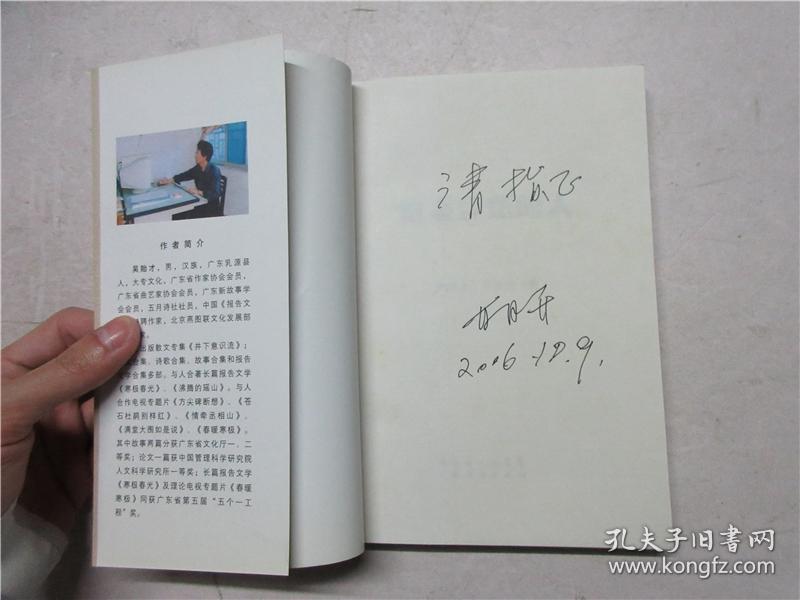 作者简介
吴贻才,男,汉族,广东乳源县
人,大专文化,广东省作家协会会员,
广东省曲艺家协会会员,广东新故事学
会会员,五月诗社社员,中国《报告文
聘作家,北京燕图联文化发展部
家。
出版散文专集《井下意识流》;
合集、诗歌合集、故事合集和报告
学合集多部。与人合著长篇报告文学
《寒极春光》、《沸腾的瑶山》。与人
合作电视专题片《方尖碑断想》、《苍
石杜鹃别样红》、《情牵丞相山》、
《满堂大围如是说》、《春暖寒极》。
其中故事两篇分获广东省文化厅一、二
等奖;论文一篇获中国管理科学研究院
人文科学研究所一等奖;长篇报告文学
《寒极春光》及理论电视专题片《春暖
寒极》同获广东省第五届“五个一工
程”奖。
请指正
2006.12.9.
孔夫子旧书网
www.kongfz.com